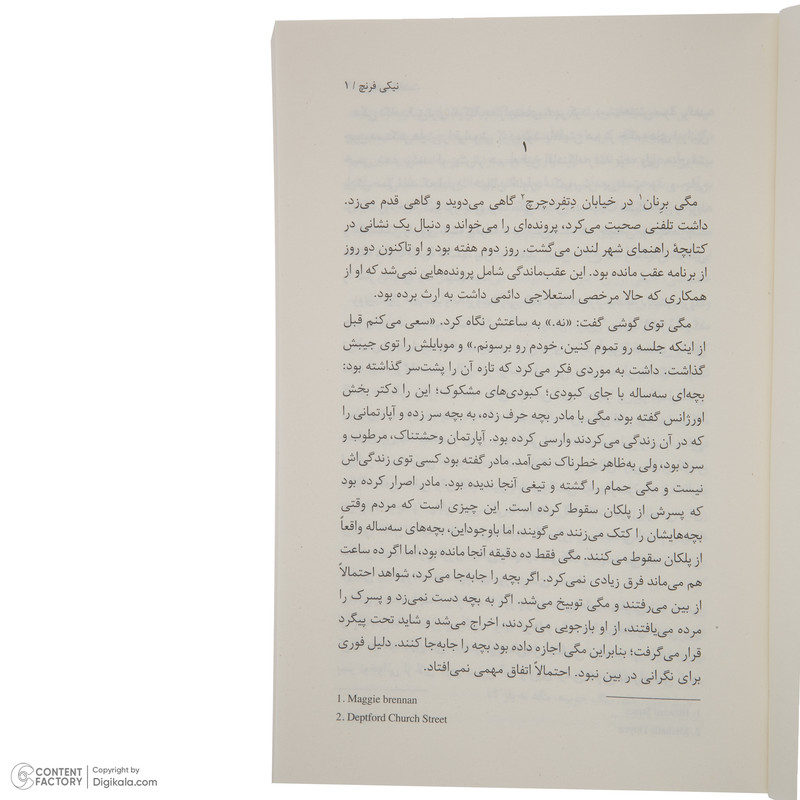 نیکی فرنچ / ۱
۱
مگی برنان۱ در خیابان دِتفِردچرچ۲ گاهی می‌دوید و گاهی قدم می‌زد.
داشت تلفنی صحبت می‌کرد، پرونده‌ای را می‌خواند و دنبال یک نشانی در
کتابچهٔ راهنمای شهر لندن می‌گشت. روز دوم هفته بود و او تاکنون دو روز
از برنامه عقب مانده بود. این عقب‌ماندگی شامل پرونده‌هایی نمی‌شد که او از
همکاری که حالا مرخصی استعلاجی دائمی داشت به ارث برده بود.
مگی توی گوشی گفت: «نه.» به ساعتش نگاه کرد. «سعی می‌کنم قبل
از اینکه جلسه رو تموم کنین، خودم رو برسونم.» و موبایلش را توی جیبش
گذاشت. داشت به موردی فکر می‌کرد که تازه آن را پشت‌سر گذاشته بود:
بچه‌ای سه‌ساله با جای کبودی؛ کبودی‌های مشکوک؛ این را دکتر بخش
اورژانس گفته بود. مگی با مادر بچه حرف زده، به بچه سر زده و آپارتمانی را
که در آن زندگی می‌کردند وارسی کرده بود. آپارتمان وحشتناک، مرطوب و
سرد بود، ولی به‌ظاهر خطرناک نمی‌آمد. مادر گفته بود کسی توی زندگی‌اش
نیست و مگی حمام را گشته و تیغی آنجا ندیده بود. مادر اصرار کرده بود
که پسرش از پلکان سقوط کرده است. این چیزی است که مردم وقتی
بچه‌هایشان را کتک می‌زنند می‌گویند، اما باوجوداین، بچه‌های سه‌ساله واقعاً
از پلکان سقوط می‌کنند. مگی فقط ده دقیقه آنجا مانده بود، اما اگر ده ساعت
هم می‌ماند فرق زیادی نمی‌کرد. اگر بچه را جابه‌جا می‌کرد، شواهد احتمالاً
از بین می‌رفتند و مگی توبیخ می‌شد. اگر به بچه دست نمی‌زد و پسرک را
مرده می‌یافتند، از او بازجویی می‌کردند، اخراج می‌شد و شاید تحت پیگرد
قرار می‌گرفت؛ بنابراین مگی اجازه داده بود بچه را جابه‌جا کنند. دلیل فوری
برای نگرانی در بین نبود. احتمالاً اتفاق مهمی نمی‌افتاد.
1. Maggie brennan
2. Deptford Church Street
CONTENT FACTORY
Copyright by
Digikala.com